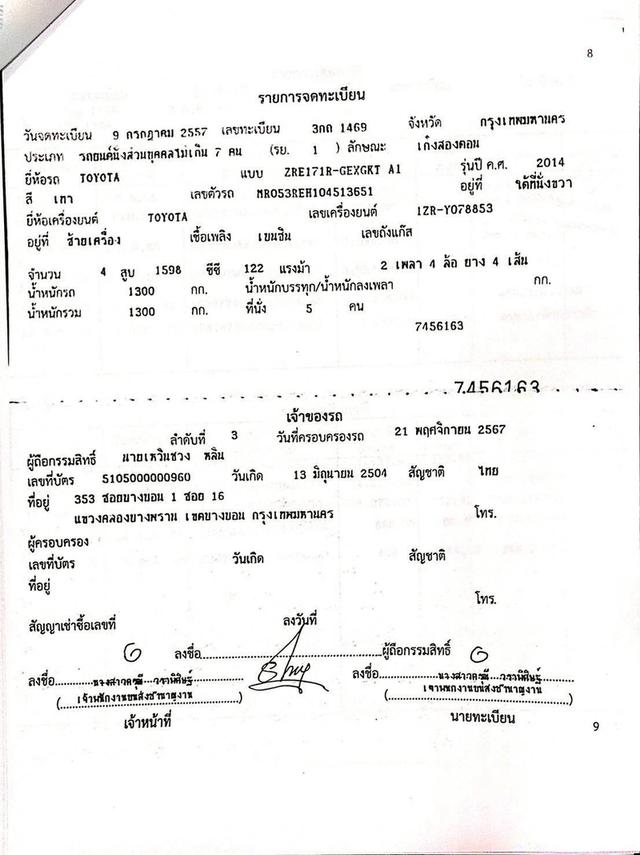 8
รายการจดทะเบียน
วันจดทะเบียน 9 กรกฎาคม 2557 เลขทะเบียน 3กถ 1469 จังหวัด กรุงเทพมหานคร
ประเภท รถยนต์นั่งส่วนบุคคลไม่เกิน 7 คน (รย. 1 ) ลักษณะ เก๋งสองตอน
ยี่ห้อรถ TOYOTA แบบ ZRE171R-GEXGKT A1 รุ่นปี ค.ศ. 2014
สี เทา เลขตัวรถ MR053REH104513651 อยู่ที่ ใต้ที่นั่งขวา
ยี่ห้อเครื่องยนต์ TOYOTA เลขเครื่องยนต์ 1ZR-Y078853
อยู่ที่ ซ้ายเครื่อง เชื้อเพลิง เบนซิน เลขถังแก๊ส
จำนวน 4 สูบ 1598 ซีซี 122 แรงม้า 2 เพลา 4 ล้อ ยาง 4 เส้น
น้ำหนักรถ 1300 กก. น้ำหนักบรรทุก/น้ำหนักลงเพลา กก.
น้ำหนักรวม 1300 กก. ที่นั่ง 5 คน
7456163
7456163
เจ้าของรถ
ลำดับที่ 3 วันที่ครอบครองรถ 21 พฤศจิกายน 2567
ผู้ถือกรรมสิทธิ์ นายเหวินชวง หลิน
เลขที่บัตร 5105000000960 วันเกิด 13 มิถุนายน 2504 สัญชาติ ไทย
ที่อยู่ 353 ซอยบางบอน 1 ซอย 16
แขวงคลองบางพราน เขตบางบอน กรุงเทพมหานคร โทร.
ผู้ครอบครอง
เลขที่บัตร วันเกิด สัญชาติ
ที่อยู่
โทร.
สัญญาเช่าซื้อเลขที่ ลงวันที่
ลงชื่อ ผู้ถือกรรมสิทธิ์
ลงชื่อ ลงชื่อ
(เจ้าพนักงานขนส่งชำนาญงาน) (เจ้าพนักงานขนส่งชำนาญงาน)
เจ้าหน้าที่ นายทะเบียน
9